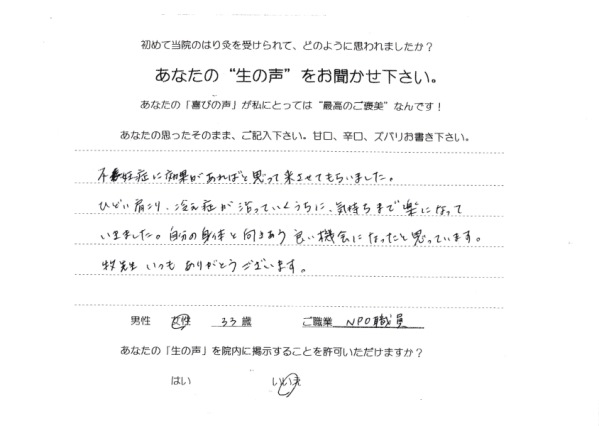 初めて当院のはり灸を受けられて、どのように思われましたか？
あなたの“生の声”をお聞かせ下さい。
あなたの「喜びの声」が私にとっては“最高のご褒美”なんです！
あなたの思ったそのまま、ご記入下さい。甘口、辛口、ズバリお書き下さい。
不妊症に効果があればと思って来させてもらいました。
ひどい肩こり、冷え症が治っていくうちに、気持ちまで楽になって
いきました。自分の身体と向きあう良い機会になったと思っています。
牧先生いつもありがとうございます。
男性 女性 33歳 ご職業 NPO職員
あなたの「生の声」を院内に掲示することを許可いただけますか？
はい いいえ